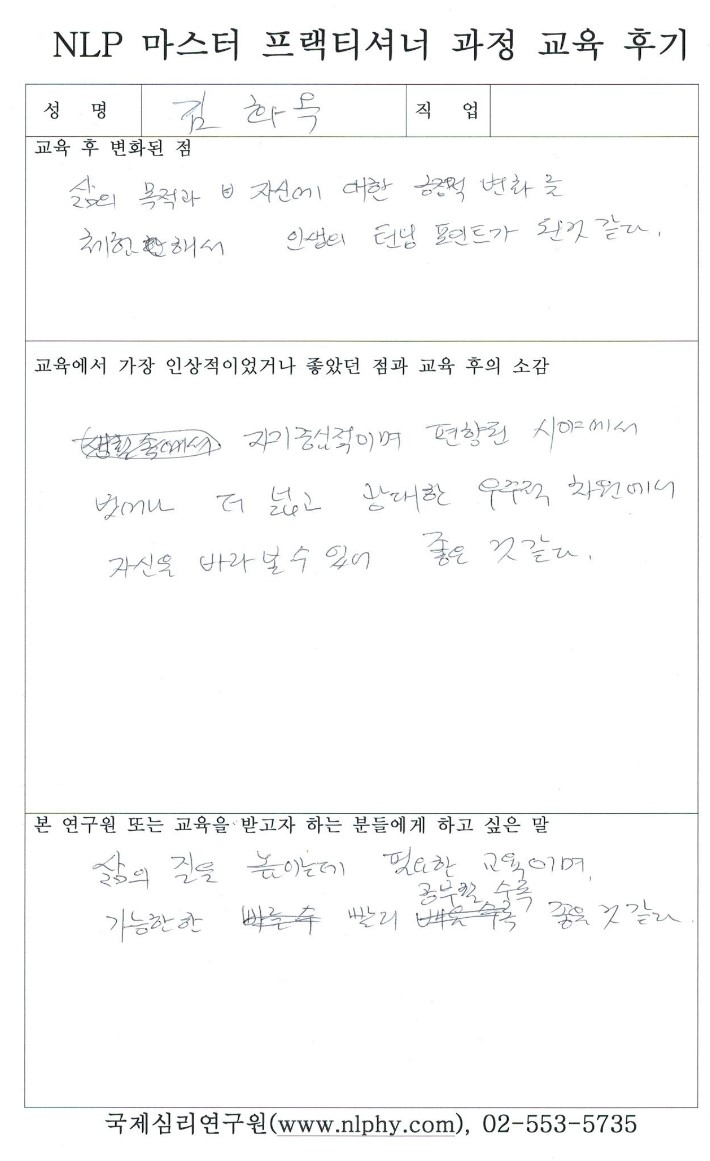 NLP 마스터 프랙티셔너 과정 교육 후기
성 명 김 화 옥 직 업
교육 후 변화된 점
삶의 목적과 자신에 대한 변화를
체험해서 인생의 터닝 포인트가 된것 같다.
교육에서 가장 인상적이었거나 좋았던 점과 교육 후의 소감
생활속에서 자기중심적이며 편향된 시야에서
벗어나 더 넓고 광대한 우주적 차원에서
자신을 바라볼 수 있어 좋은 것 같다.
본 연구원 또는 교육을 받고자 하는 분들에게 하고 싶은 말
삶의 질을 높이는데 필요한 교육이며,
공부할 수록
가능한한 빨리 배울수록 좋을 것 같다.
국제심리연구원(www.nlphy.com), 02-553-5735